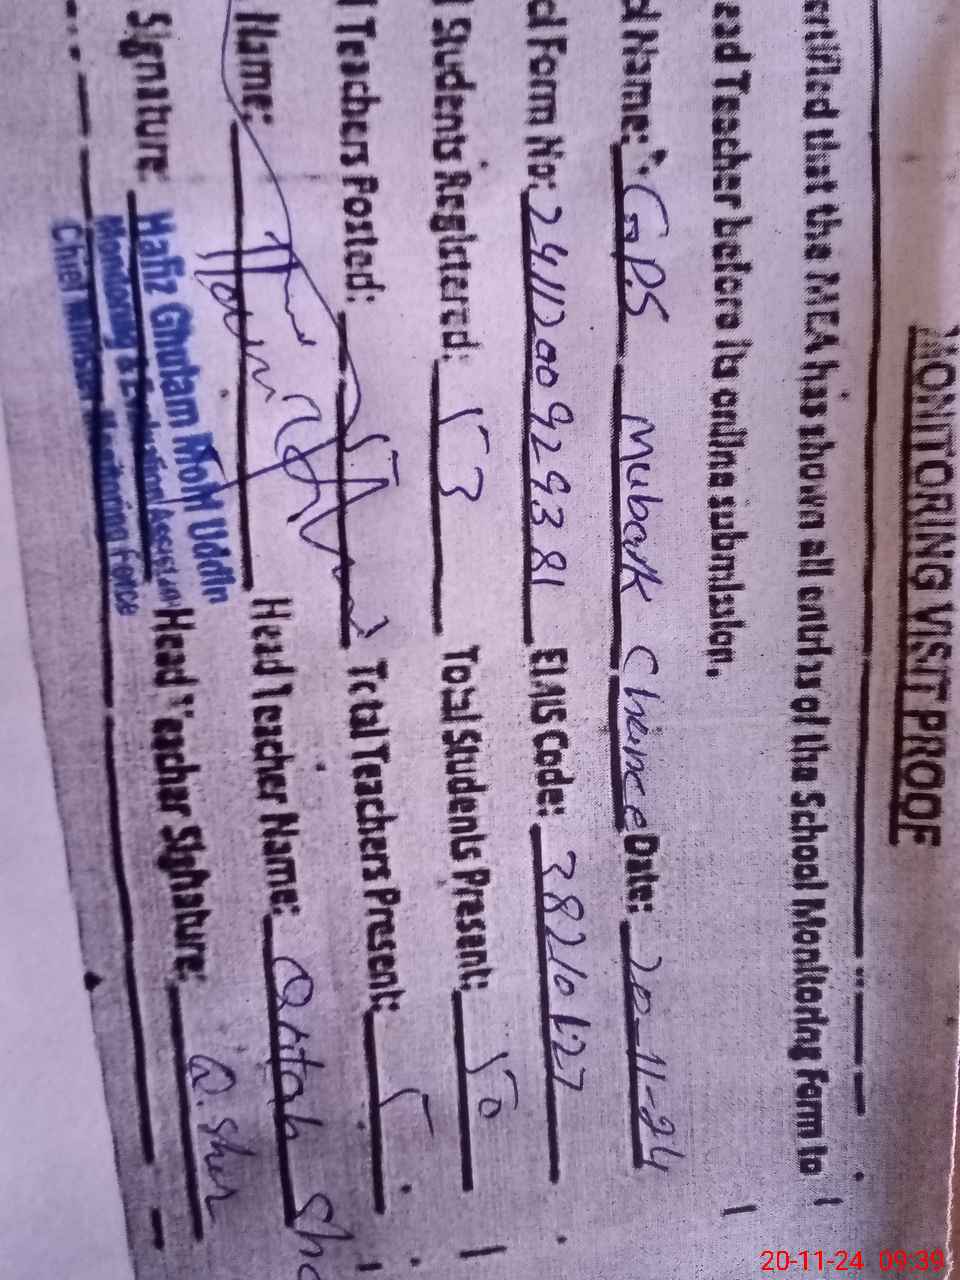 MONITORING VISIT PROOF
ertified that the MEA has shown all entries of the School Monitoring Form to
ead Teacher before its online submission.
d Name: GPS Mubarak Date: 20-11-24
d Form No: 2411200929381 EMIS Code: 38210127
l Students Registered: 53 Total Students Present: 50
l Teachers Posted: 5 Total Teachers Present: 5
Name: Head Teacher Name:
Signature: Head Teacher Signature: Q. Sher
Hafiz Ghulam Moh Uddin
Monitoring & Evaluation Assistant
Chief Minister Monitoring Force
20-11-24 09:39